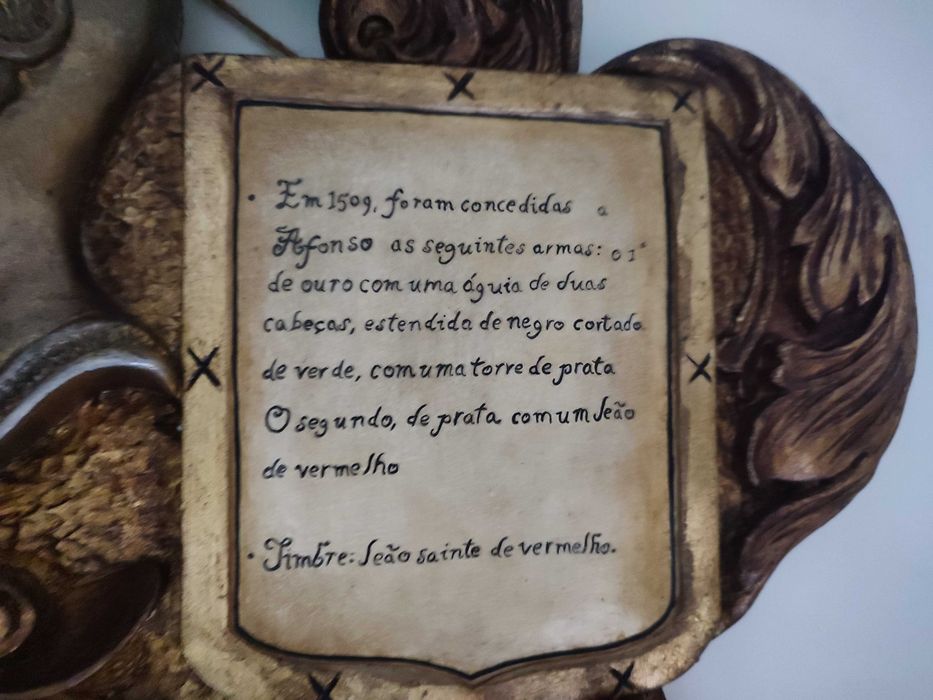 · Em 1509, foram concedidas a
Afonso as seguintes armas: o 1º
de ouro com uma águia de duas
cabeças, estendida de negro cortado
de verde, com uma torre de prata
O segundo, de prata com um leão
de vermelho
· Timbre: leão sainte de vermelho.